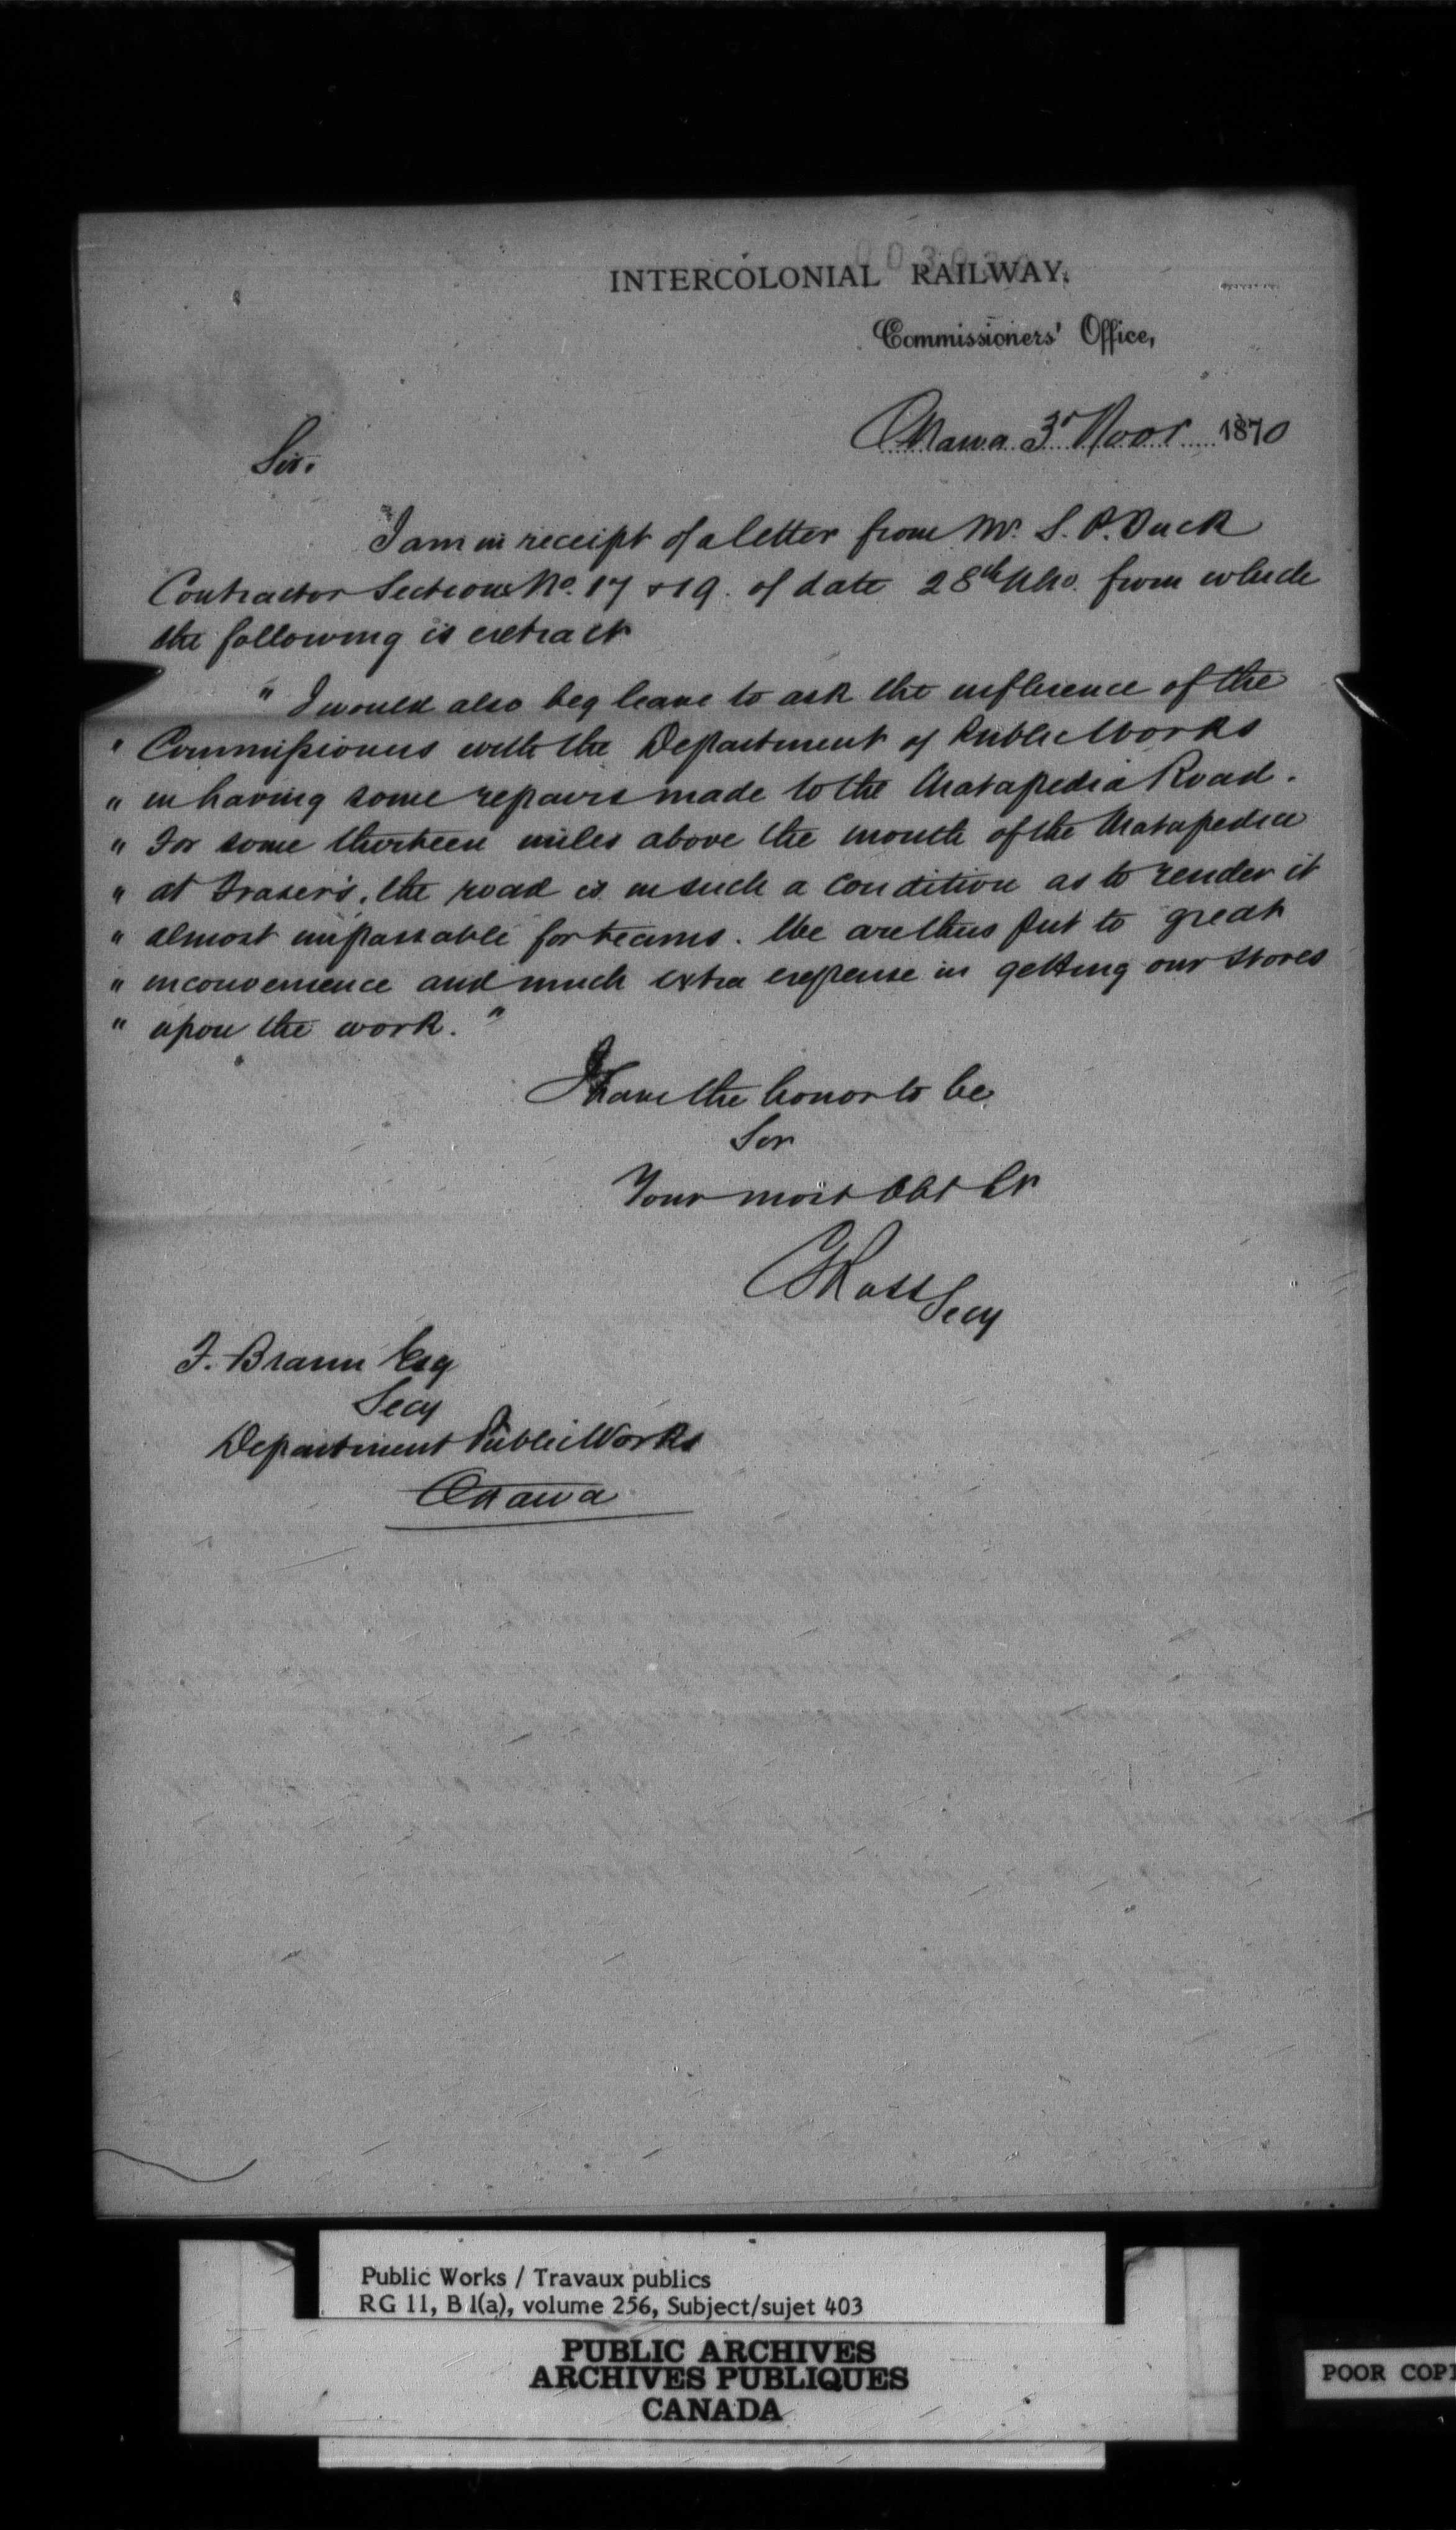 INTERCOLONIAL RAILWAY.
Commissioners' Office,
Ottawa 3d Novr 1870
Sir.
I am in receipt of a letter from Mr. S. P. Tuck
Contractor Sections No. 17 & 19. of date 28th Ulto. from which
the following is extract
" I would also beg leave to ask the influence of the
" Commissioners with the Department of Public Works
" in having some repairs made to the Matapedia Road.
" For some thirteen miles above the mouth of the Matapedia
" at Fraser's, the road is in such a condition as to render it
" almost impassable for teams. We are thus put to great
" inconvenience and much extra expense in getting our stores
" upon the work. "
I have the honor to be
Sir
Your most Obt St
C S Ross
Secy
F. Braun Esq
Secy
Department Public Works
Ottawa
Public Works / Travaux publics
RG 11, B 1(a), volume 256, Subject/sujet 403
PUBLIC ARCHIVES
ARCHIVES PUBLIQUES
CANADA
POOR COP